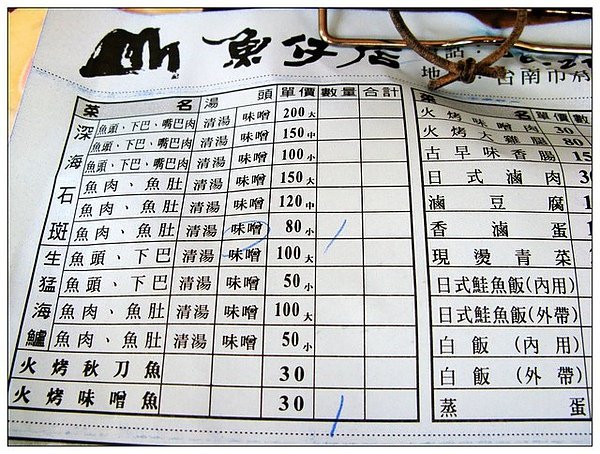 魚仔店
地 台南市
菜名 湯頭 單價 數量 合計
深海石斑
魚頭、下巴、嘴巴肉 清湯 味噌 200大
魚頭、下巴、嘴巴肉 清湯 味噌 150中
魚頭、下巴、嘴巴肉 清湯 味噌 100小
魚肉、魚肚 清湯 味噌 150大
魚肉、魚肚 清湯 味噌 120中
魚肉、魚肚 清湯 味噌 80小
生猛海鱸
魚頭、下巴 清湯 味噌 100大
魚頭、下巴 清湯 味噌 50小
魚肉、魚肚 清湯 味噌 100大
魚肉、魚肚 清湯 味噌 50小
火烤秋刀魚 30
火烤味噌魚 30
菜名 單價 數
火烤味噌肉 30
火烤大雞腿 80
古早味香腸 15
日式滷肉
滷豆腐
香滷蛋
現燙青菜
日式鮭魚飯(內用)
日式鮭魚飯(外帶)
白飯(內用)
白飯(外帶)
蒸蛋